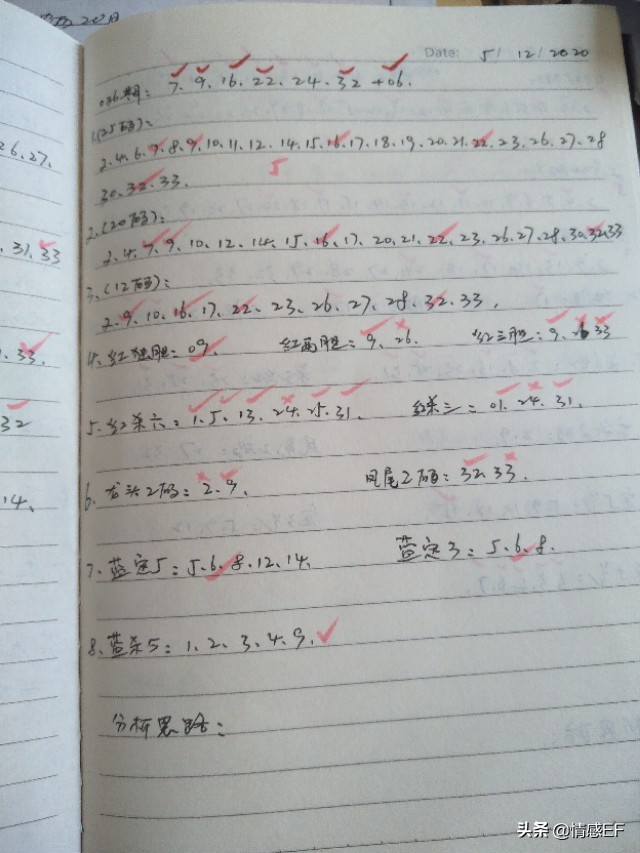 Date: 5 / 12 / 2020
036期: 7、9、16、22、24、32+06.
1.(25码):
2.4.6.7.8.9.10.11.12.14.15.16.17.18.19.20.21.22.23.26.27.28
30.32.33.
5
2.(20码):
2.4.7.9.10.12.14.15.16.17.20.21.22.23.26.27.28.30.32.33
3.(12码):
2.9.10.16.17.22.23.26.27.28.32.33.
4.红独胆: 09. 红两胆: 9.26. 红三胆: 9.26 33
5.红杀六: 1.5.13.24.25.31. 红杀三: 01.24.31.
6.龙头2码: 2.9. 凤尾2码: 32 33.
7.蓝定5: 5.6.8.12.14. 蓝定3: 5.6.8.
8.蓝杀5: 1、2、3、4、9.
分析思路:
26.27.
.31.33
.33.
32
.14.
头条 @情感EF